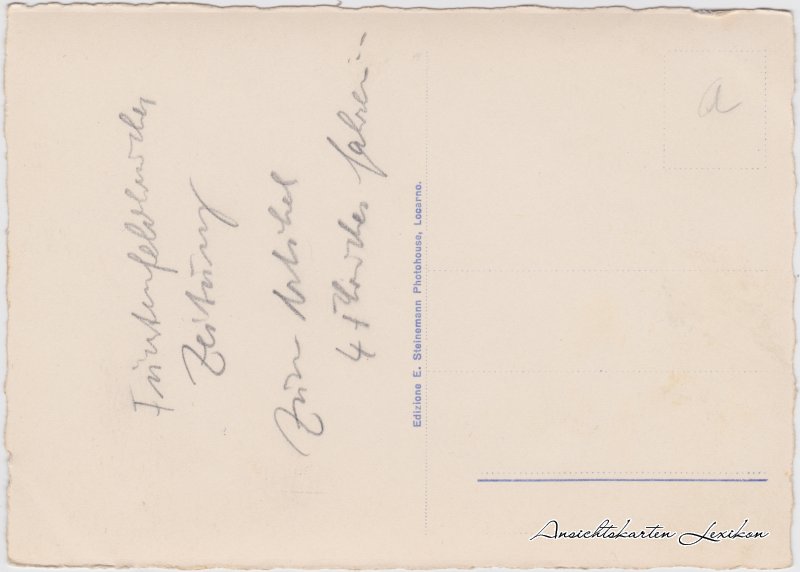 Zeitung
Zum Artikel
4
fahren
Edizione E. Steinemann Photohouse, Locarno.
a
Ansichtskarten Lexikon